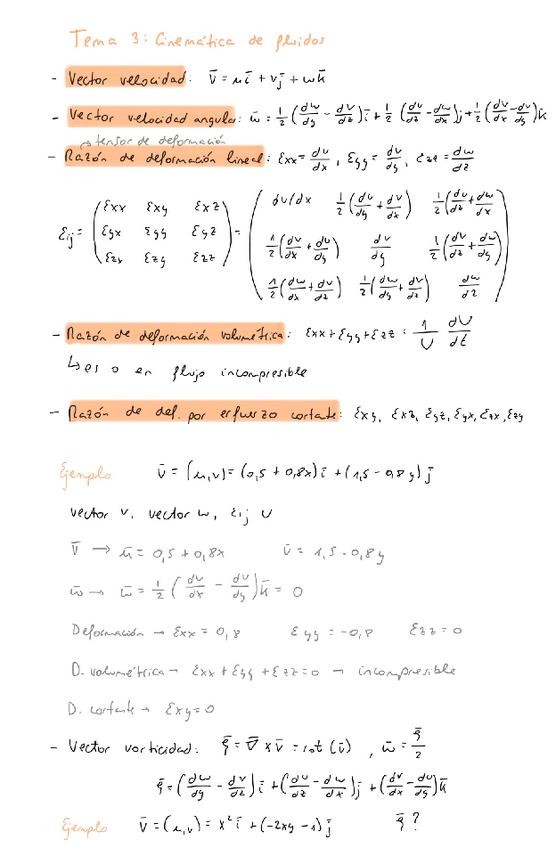 Tema 3: Cinemática de fluidos
- Vector velocidad: v̄ = uī + vj̄ + wk̄
- Vector velocidad angular: w̄ = 1/2 (dw/dy - dv/dz) ī + 1/2 (du/dz - dw/dx) j + 1/2 (dv/dx - du/dy) k̄
→ tensor de deformación
- Razón de deformación lineal: Ɛxx = du/dx, Ɛyy = dv/dy, Ɛzz = dw/dz
Ɛij = (Ɛxx Ɛxy Ɛxz / Ɛyx Ɛyy Ɛyz / Ɛzx Ɛzy Ɛzz) = (du/dx 1/2(dv/dx + du/dy) 1/2(du/dz + dw/dx) / 1/2(dv/dx + du/dy) dv/dy 1/2(dv/dz + dw/dy) / 1/2(dw/dx + du/dz) 1/2(dw/dy + dv/dz) dw/dz)
- Razón de deformación volumétrica: Ɛxx + Ɛyy + Ɛzz = 1/V dV/dt
↳ es 0 en flujo incompresible
- Razón de def. por esfuerzo cortante: Ɛxy, Ɛxz, Ɛyz, Ɛyx, Ɛzx, Ɛzy
Ejemplo v̄ = (u,v) = (0,5 + 0,8x) ī + (1,5 - 0,8y) j̄
vector v, vector w, Ɛij V
v̄ → ū = 0,5 + 0,8x v̄ = 1,5 - 0,8y
w̄ → w̄ = 1/2 (dv/dx - du/dy) k̄ = 0
Deformación → Ɛxx = 0,8 Ɛyy = -0,8 Ɛzz = 0
D. volumétrica → Ɛxx + Ɛyy + Ɛzz = 0 → incompresible
D. cortante → Ɛxy = 0
- Vector vorticidad: ξ̄ = ∇̄ x v̄ = rot (v̄) , w̄ = ξ̄/2
ξ̄ = (dw/dy - dv/dz) ī + (du/dz - dw/dx) j̄ + (dv/dx - du/dy) k̄
Ejemplo v̄ = (u,v) = x² ī + (-2xy - 1) j̄ ξ̄ ?